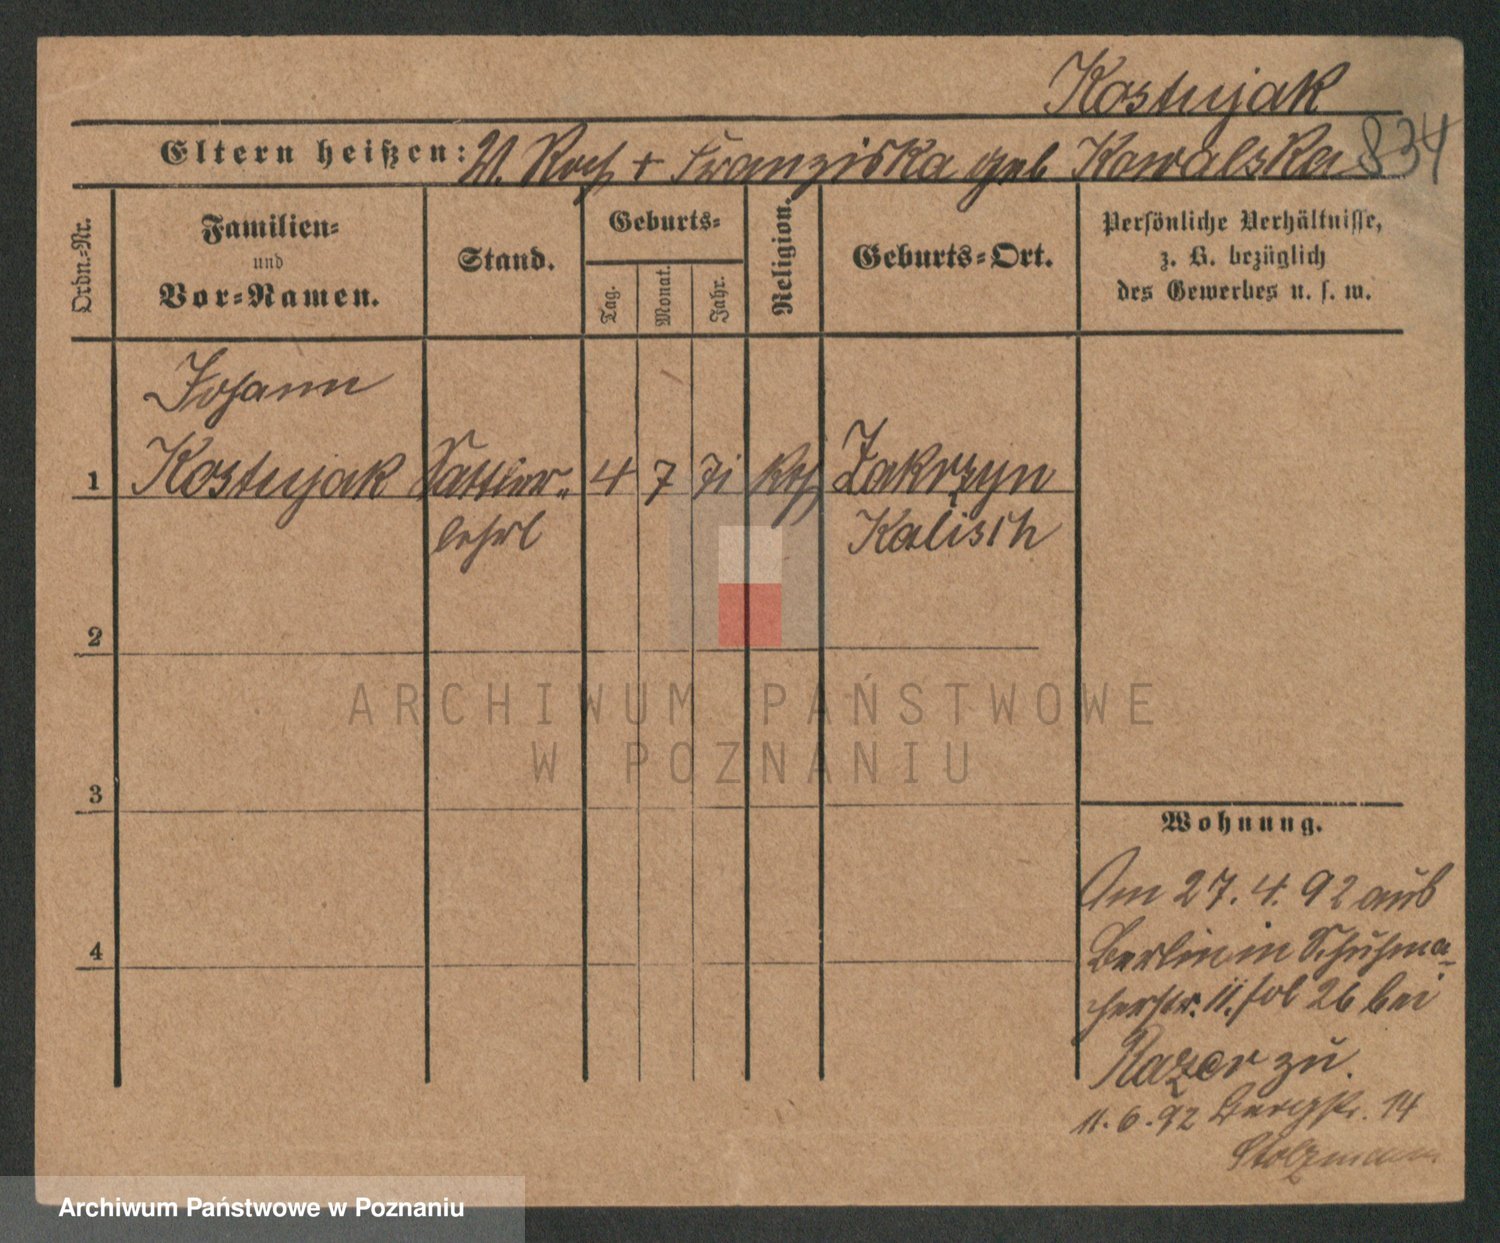 Kostujak
Eltern heißen: V. Roch + Franziska geb Kowalska 834
Ordn.-Nr.
Familien-
und
Vor-Namen.
Stand.
Geburts-
Tag.
Monat.
Jahr.
Religion.
Geburts-Ort.
Persönliche Verhältnisse,
z. B. bezüglich
des Gewerbes u. s. w.
Johann
1 Kostujak Sattler- 4 7 71 kth Zakrzyn
lehrl Kalisch
2
3
4
Wohnung.
Am 27. 4. 92 aus
Berlin in Schuhma-
cherstr. 11. fol 26 bei
zu.
11. 6. 92 Bergstr. 14
Stolzmann
ARCHIWUM PAŃSTWOWE
W POZNANIU
Archiwum Państwowe w Poznaniu